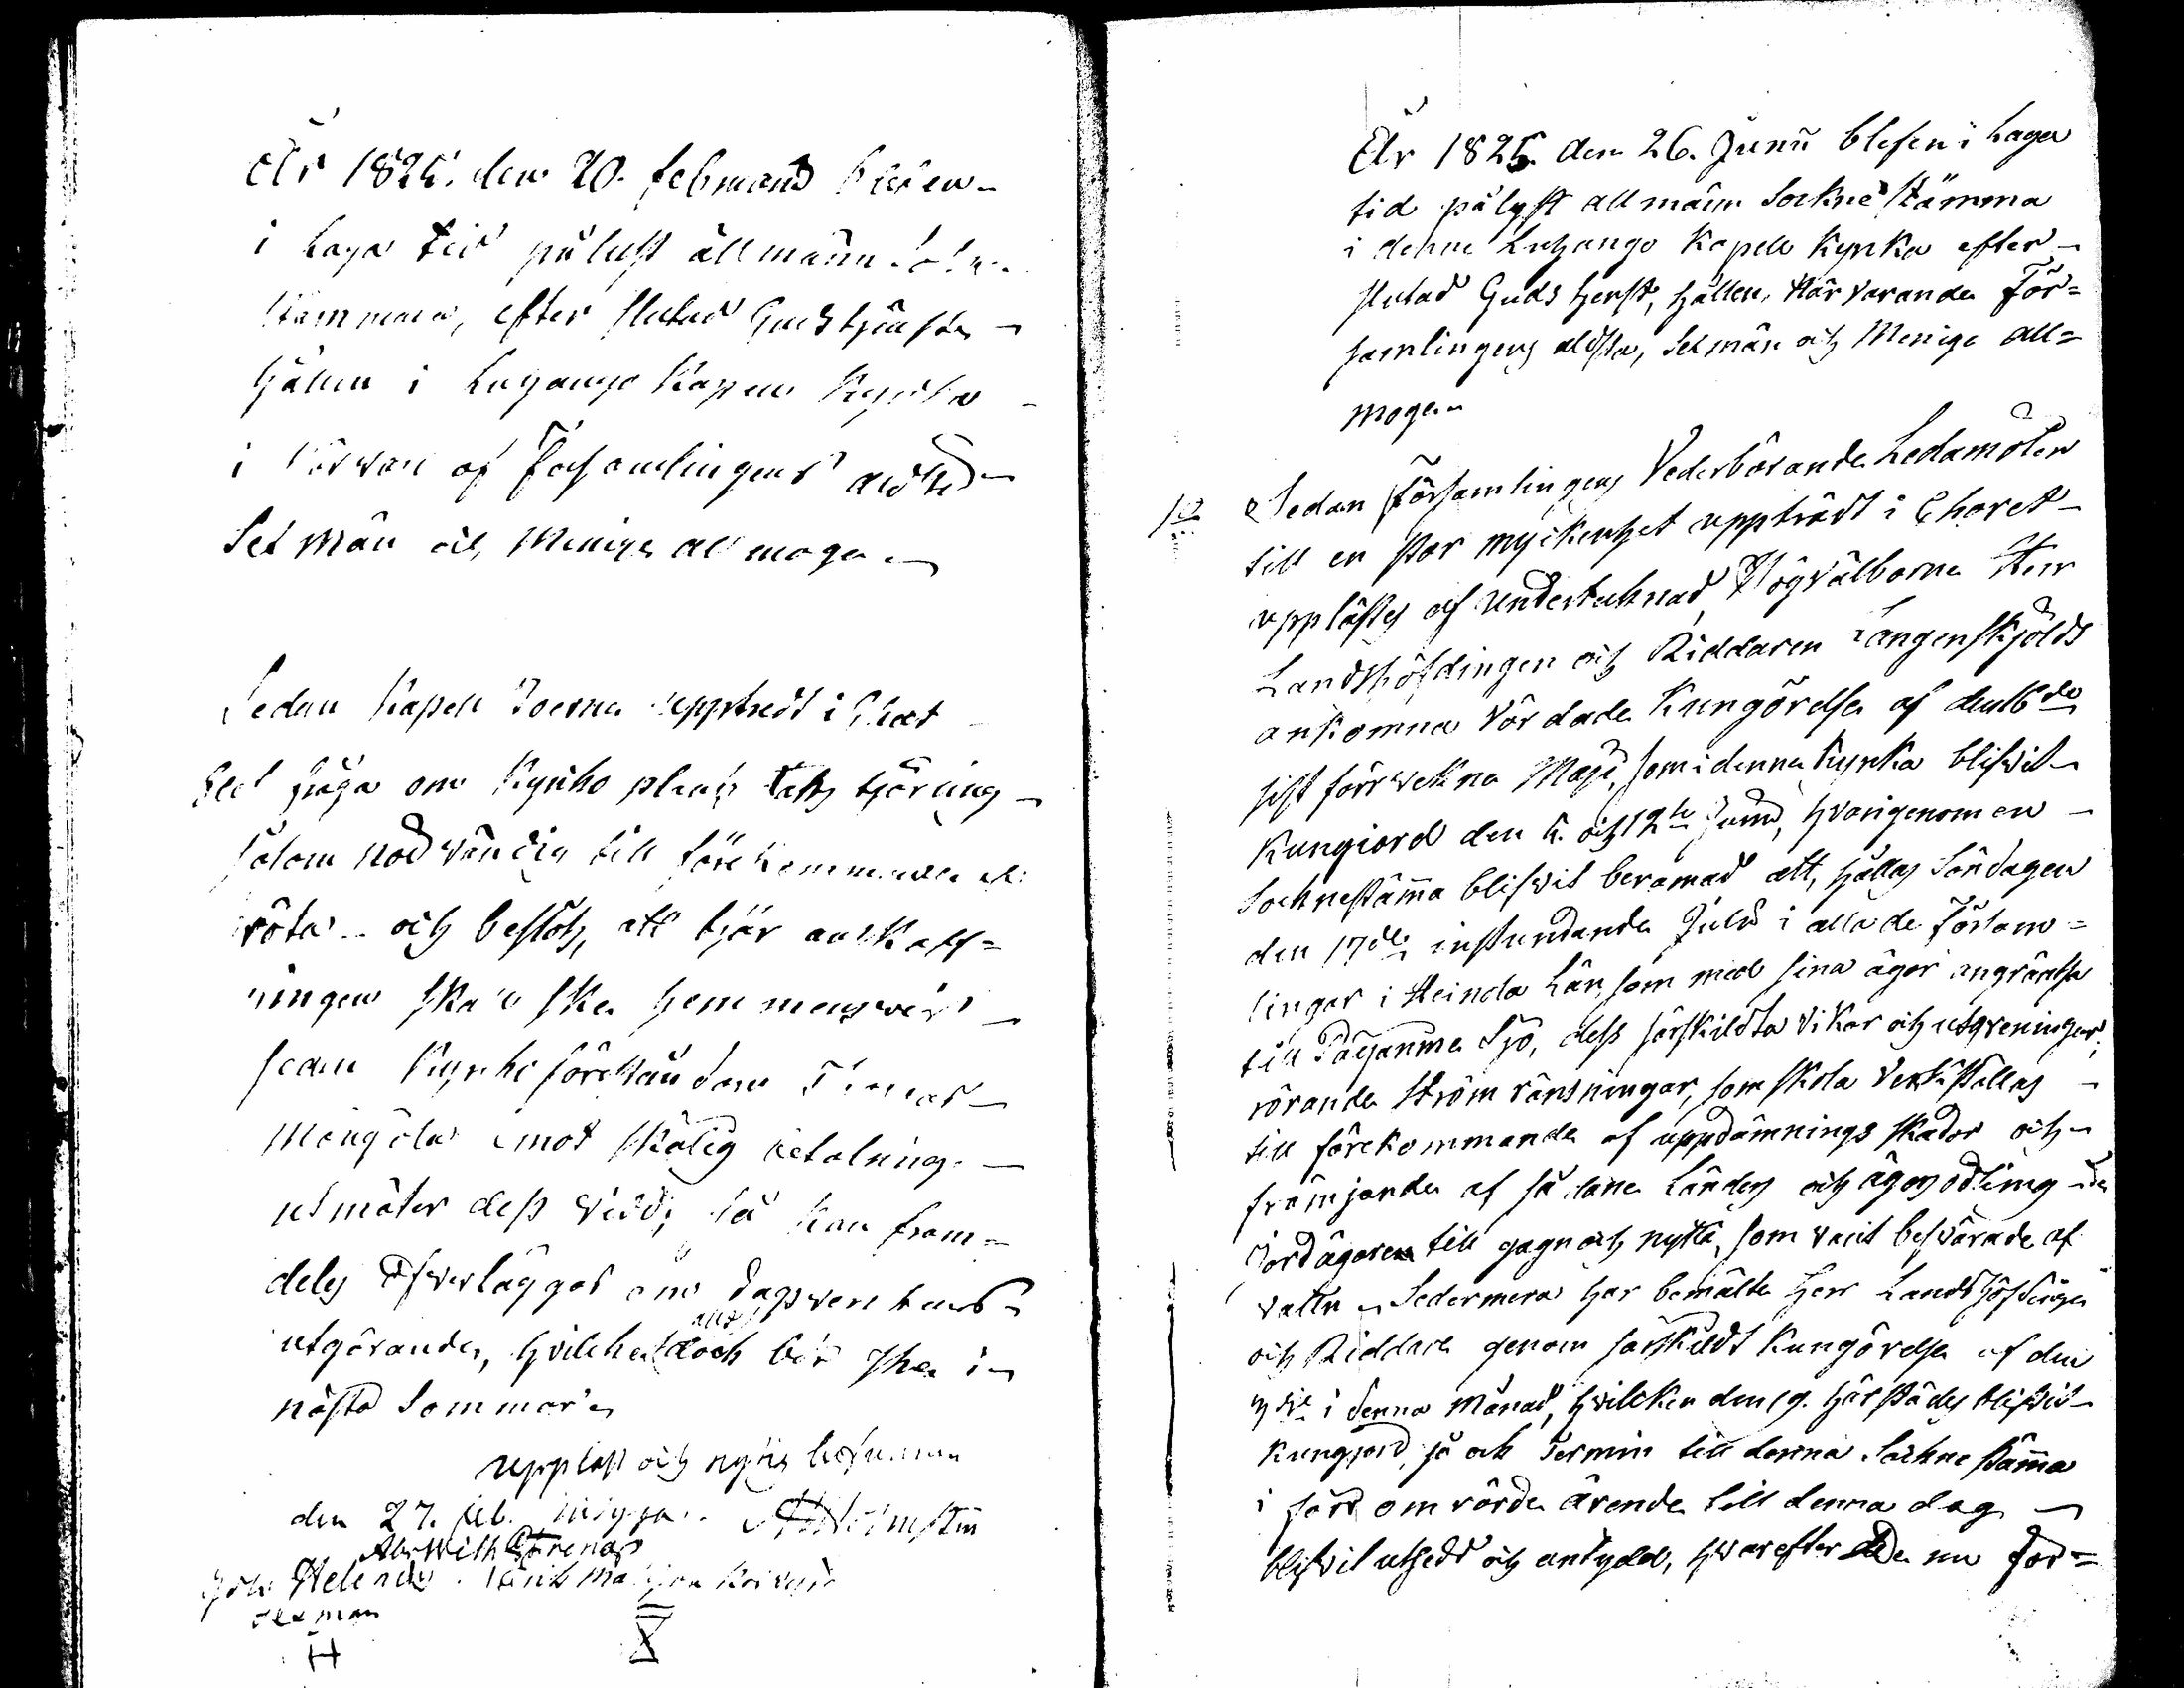 År 1825. den 20. februarii blefven
i Laga tid pålyst allmänn Sokne
stämma, efter slutad Gudstjenst
hållen i Luhango Kapell Kyrka
i närvaro af Församlingens äldste
Sexmän och Menige allmogen
Sedan Kapell Boerna uppträdt i Choret
blef fråga om Kyrko plank taks tjärning
såsom nödvändig till förekommande af
röta och beslöts, att tjär anskaff-
ningen skall ske hemmansvis
sedan Kyrko föreståndaren Thomas
Mångola emot skälig betalning
utmäter dess vidd; så kan fram-
deles öfverläggas om dagsverkens
utgörande, hvilcket doch bör ske i
nästa Sommar
uppläst och nyttig befunnen
den 27. feb. A Holmsten
Abr Wilh Strenas
Joh: Helenius
sexman
År 1825. den 26. Junii blefven i Laga
tid pålyst allmänn Sockne Stämma
i denne Luhango Kapell Kyrka efter
slutad Guds tjenst, hållen, Närvarande För=
samlingens äldsta, Sexmän och Menige All=
mogen
1o Sedan Församlingens Vederbörande Ledamöter
till en stor myckenhet uppträdt i Choret
upplästes af undertecknad Högvälborne Herr
Landshöfdingen och Riddaren Langenskjölds
ankomna vördade Kungörelse af den 16de
sist förvekne Maji, som i denne Kyrka blifvit
Kungiord den 5. och 12te Junii, hvarigenom en
Sochnestämma blifvit beramad att, hållas Söndagen
den 17de instundande Julii i alla de Försam=
lingar i Heinola Län, som med sina ägor angräntsa
till Päijänne Sjö, dess särskildta Vikar och utgreningar,
rörande Ström ränsningar, som skola Verkställas
till förekommande af uppdämnings skador och
främjande af sådane Länders och ägors odling
Jordägaren till gagn och nytta, som varit besvärade af
vatten. Sedermera har bemälte Herr Landshöfdinge
och Riddare genom särskildt Kungörelse af den
i denna Månad, hvilcken den 19. härstädes blifvit
kungjord, så ock Termin till denna Sochne stämma
i förr omrörde ärende till denna dag
blifvit utsedd och antydd, hvarefter de nu För=